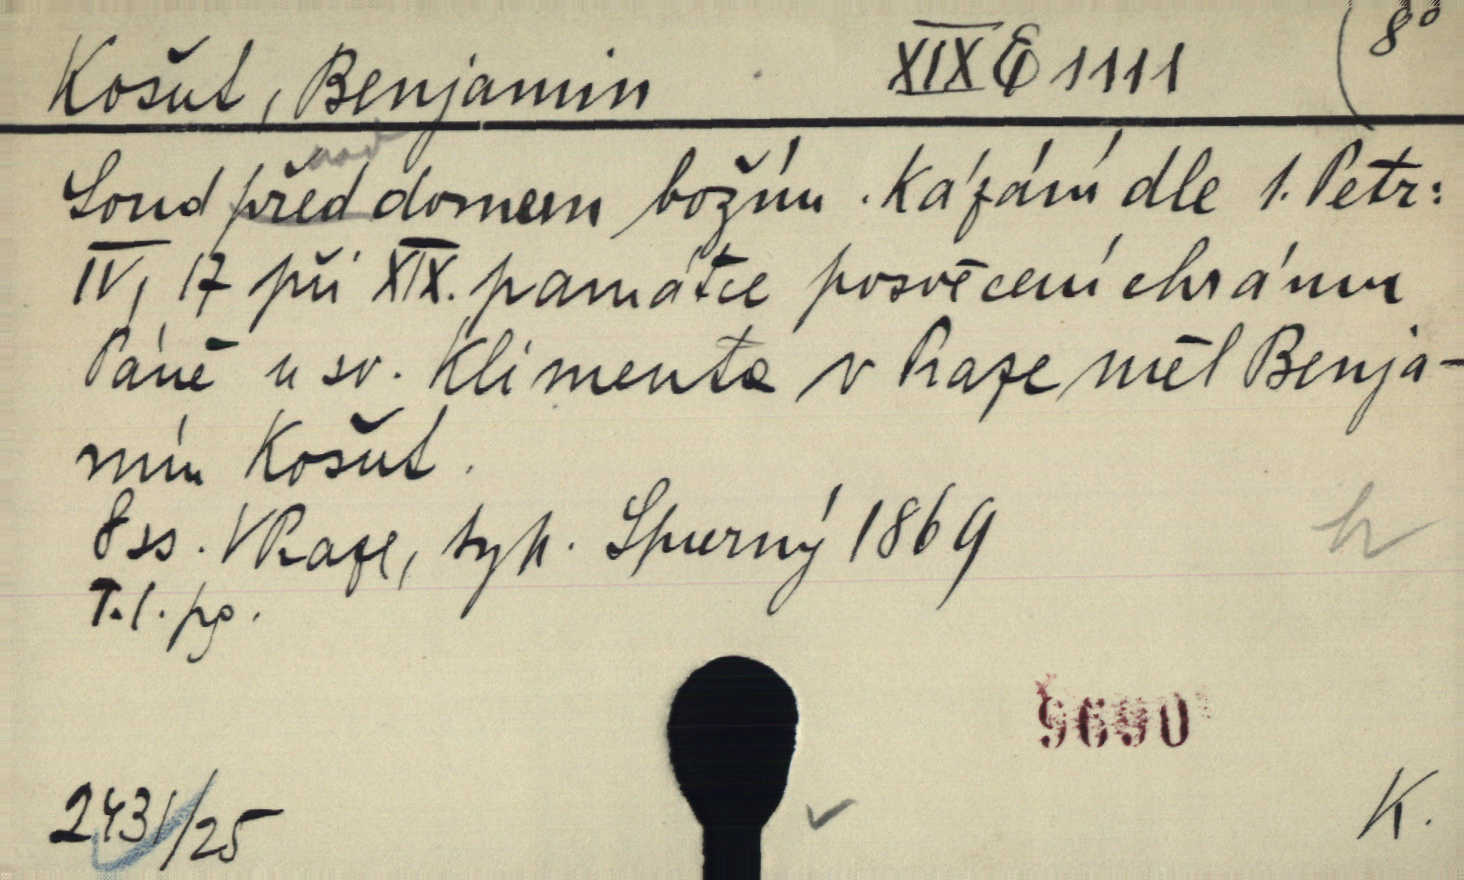 Košut, Benjamin XIX E 1111 8°
nad
Soud před domem božím. Kázání dle 1. Petr:
IV, 17 při XIX. památce posvěcení chrámu
Páně u sv. Klimenta v Praze měl Benja-
mín Košut.
8 ss. V Praze, typ. Spurný 1869
T. l. pg.
9690
2431/25
K.